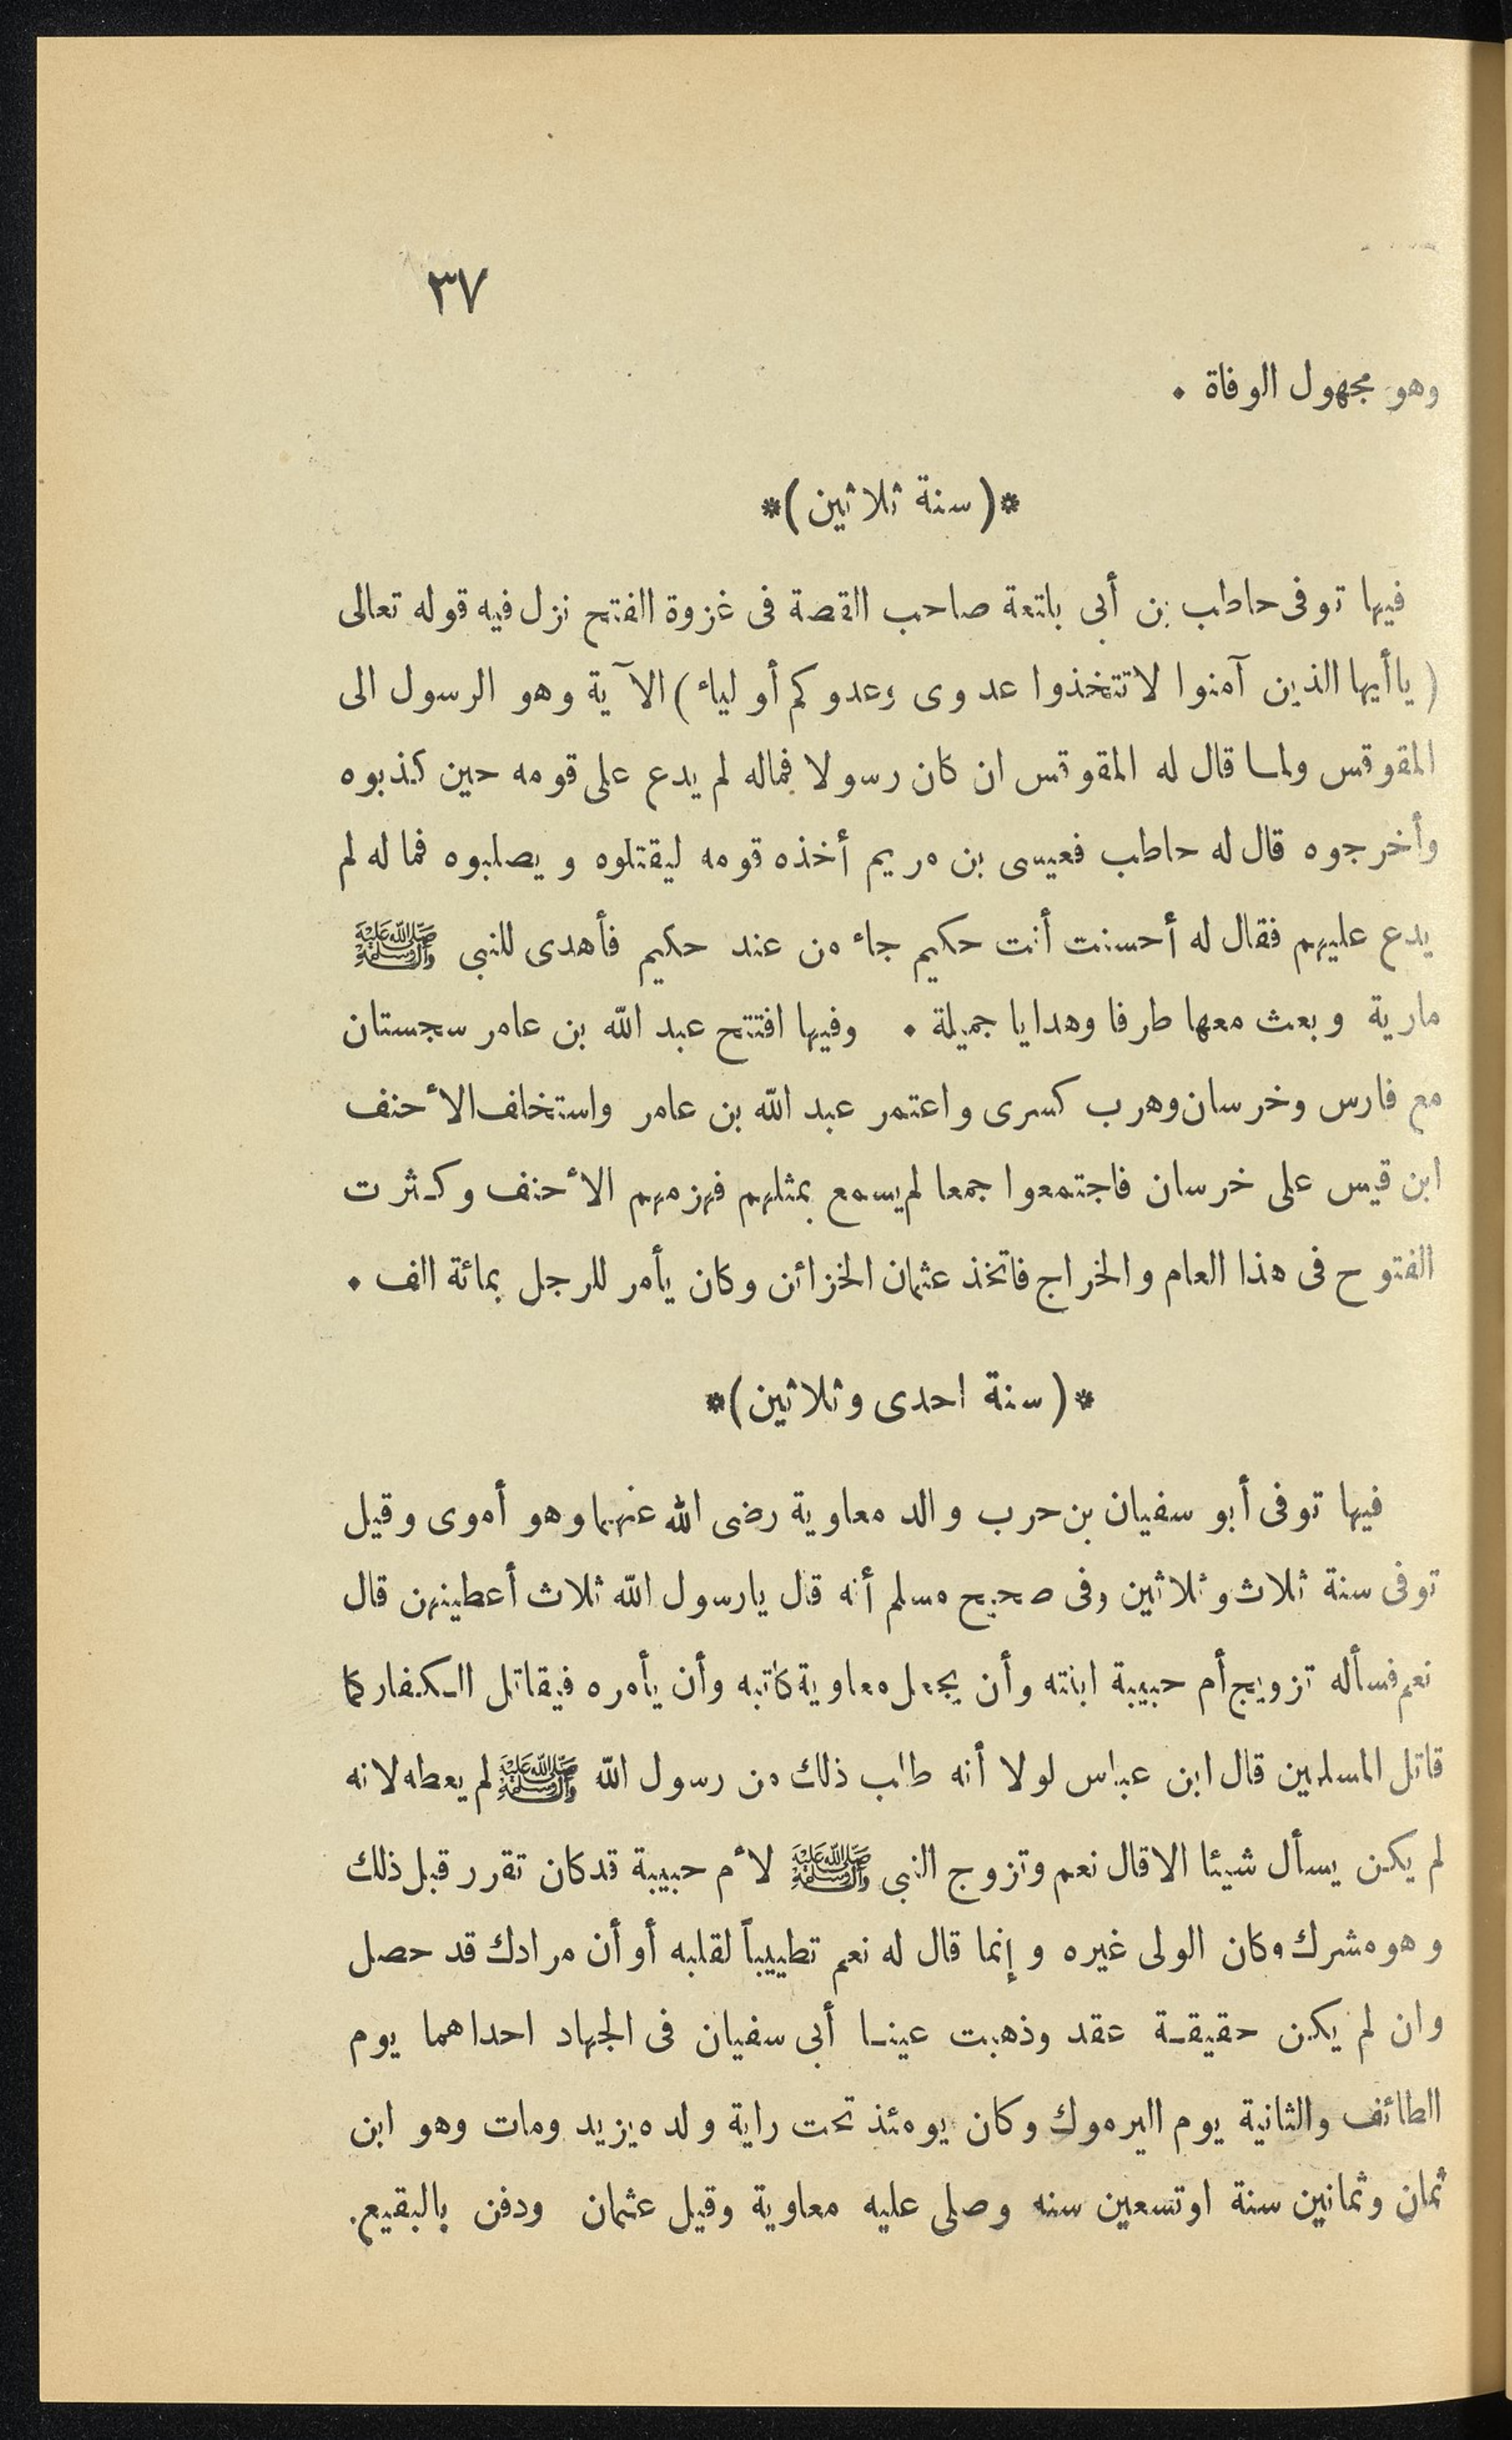 ٣٧
وهو مجهول الوفاة ٠
*( سنة ثلاثين )*
فيها توفى حاطب بن أبى بلتعة صاحب القصة فى غزوة الفتح نزل فيه قوله تعالى
( ياأيها الذين آمنوا لاتتخذوا عدوى وعدوكم أولياء ) الآية وهو الرسول الى
المقوقس ولما قال له المقوقس ان كان رسولا فماله لم يدع على قومه حين كذبوه
وأخرجوه قال له حاطب فعيسى بن مريم أخذه قومه ليقتلوه ويصلبوه فما له لم
يدع عليهم فقال له أحسنت أنت حكيم جاء من عند حكيم فأهدى للنبى ﷺ
مارية وبعث معها طرفا وهدايا جميلة ٠ وفيها افتتح عبد الله بن عامر سجستان
مع فارس وخرسان وهرب كسرى واعتمر عبد الله بن عامر واستخلف الأحنف
ابن قيس على خرسان فاجتمعوا جمعا لم يسمع بمثلهم فهزمهم الأحنف وكثرت
الفتوح فى هذا العام والخراج فاتخذ عثمان الخزائن وكان يأمر للرجل بمائة الف ٠
*( سنة احدى وثلاثين )*
فيها توفى أبو سفيان بن حرب والد معاوية رضى الله عنهما وهو أموى وقيل
توفى سنة ثلاث وثلاثين وفى صحيح مسلم أنه قال يارسول الله ثلاث أعطينهن قال
نعم فسأله تزويج أم حبيبة ابنته وأن يجعل معاوية كاتبه وأن يأمره فيقاتل الكفار كما
قاتل المسلمين قال ابن عباس لولا أنه طلب ذلك من رسول الله ﷺ لم يعطه لانه
لم يكن يسأل شيئا الا قال نعم وتزوج النبى ﷺ لأم حبيبة قد كان تقرر قبل ذلك
وهو مشرك وكان الولى غيره وإنما قال له نعم تطييباً لقلبه أو أن مرادك قد حصل
وان لم يكن حقيقة عقد وذهبت عينا أبى سفيان فى الجهاد احداهما يوم
الطائف والثانية يوم اليرموك وكان يومئذ تحت راية ولده يزيد ومات وهو ابن
ثمان وثمانين سنة اوتسعين سنه وصلى عليه معاوية وقيل عثمان ودفن بالبقيع.